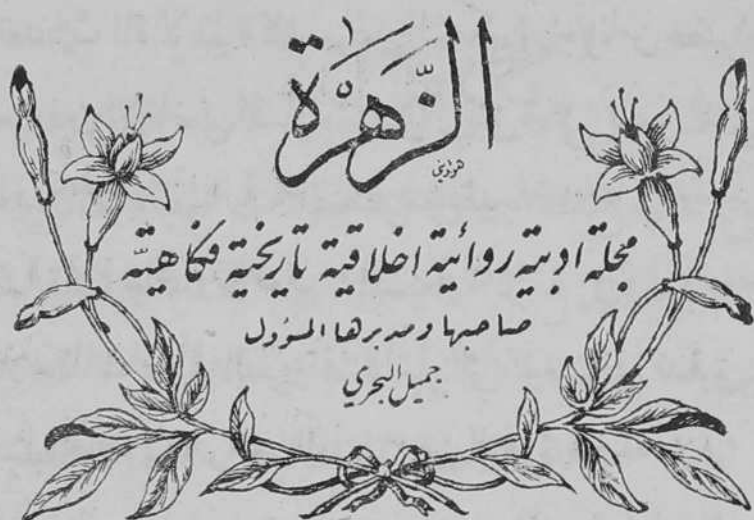 الزَّهْرَة
هواويني
مجلة ادبية روائية اخلاقية تاريخية فكاهيَّة
صاحبها ومديرها المسؤول
جميل البحري